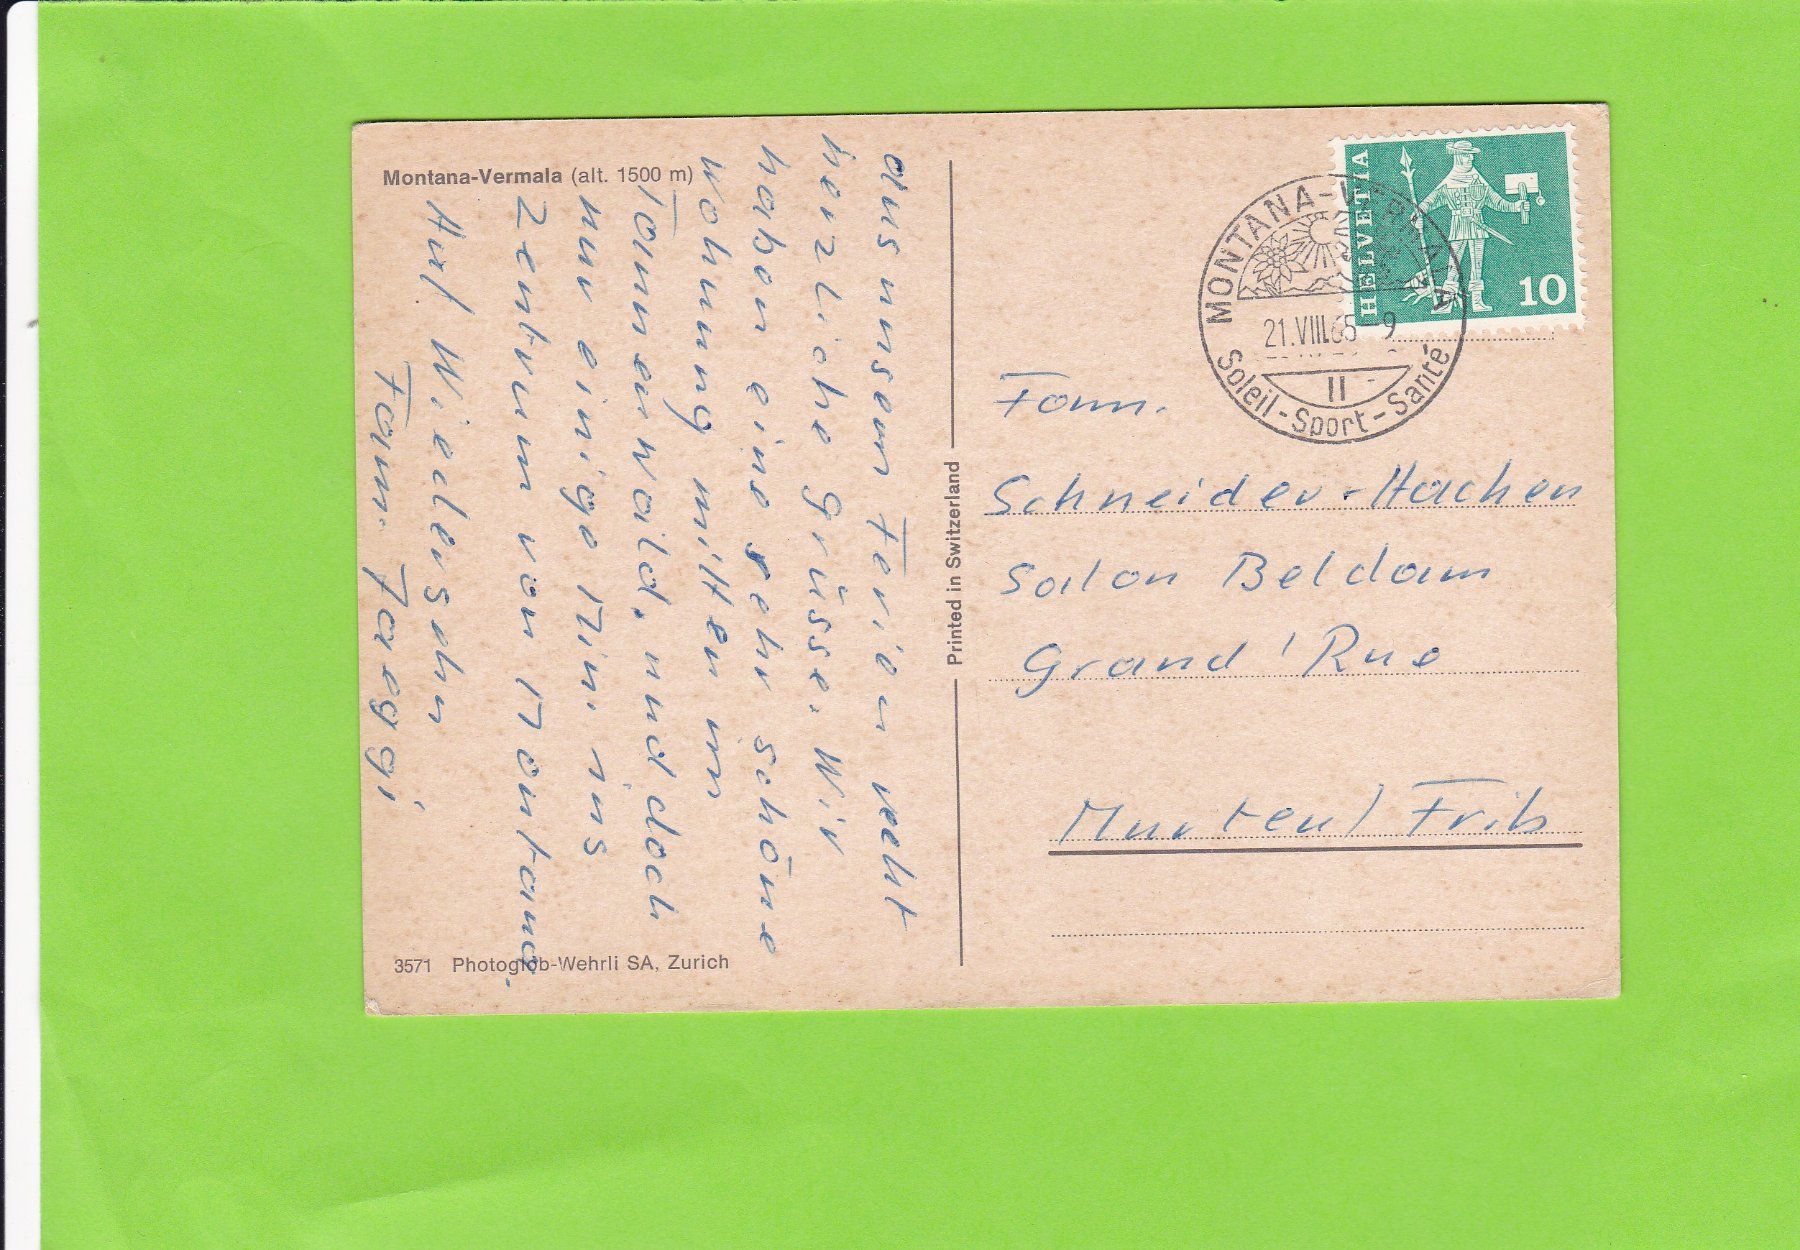 Montana-Vermala (alt. 1500 m)
aus unsern Ferien recht
herzliche Grüsse. Wir
haben eine sehr schöne
Wohnung mitten im
Tannenwald, und doch
nur einige Min. ins
Zentrum von Montana.
Auf Wiedersehn
Fam. Jaeggi
3571 Photoglob-Wehrli SA, Zurich
Printed in Switzerland
HELVETIA
10
MONTANA-VERMALA
21.VIII.65-9
II
Soleil-Sport-Santé
Fam.
Schneider-Hachen
Salon Beldam
Grand'Rue
Murten / Frib